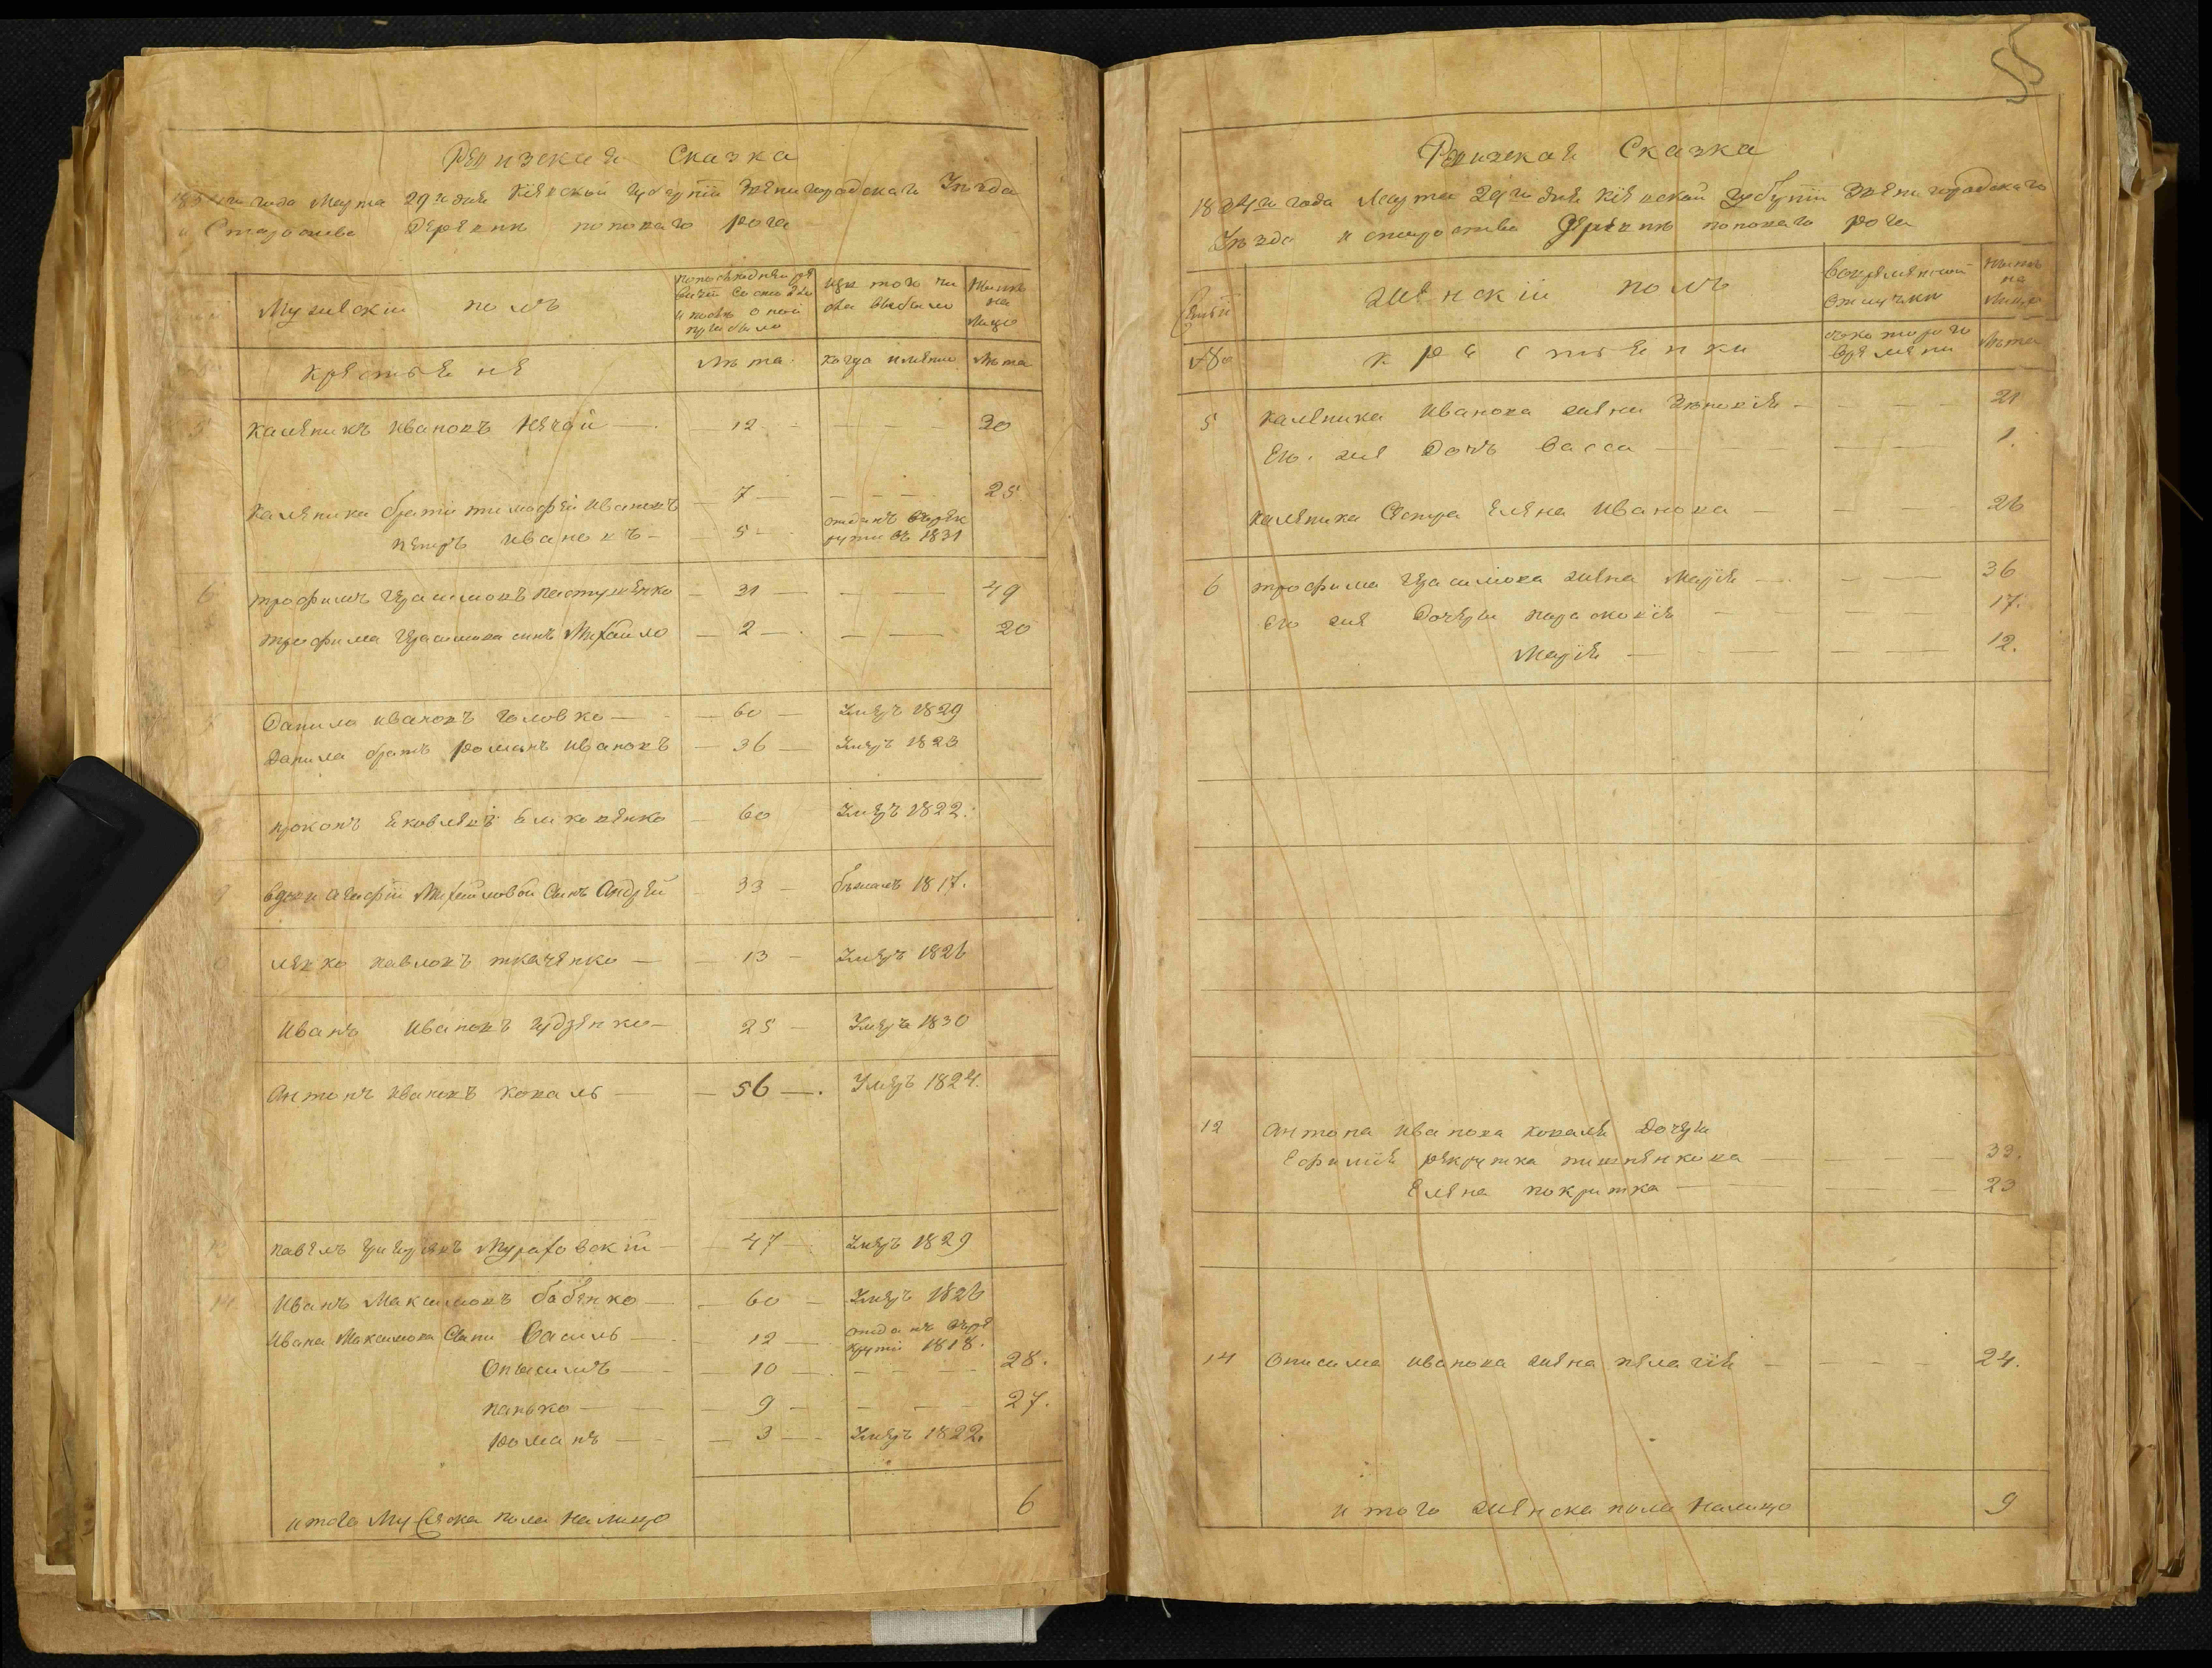 Ревизская Сказка
1834го года Марта 29го дня Кіевской Губерніи Звенигородскаго Уезда
и Староства Деревни Поповаго Рога
Мужескій полъ
По последней ре
визіи состояло
и после оной
прибыло
Изъ того чи
сла выбыло
Ныне
на
лицо
Крестьяне
Лета
Когда имянно
Лета
5 Каленикъ Ивановъ Нечай — 12 — — — 30
Каленика братіи Тимофей Ивановъ — 7 — — — — 25
Петръ Ивановъ — 5 — отданъ въ рек
руты въ 1831
6 Трофимъ Герасимовъ Пастушенко — 31 — — — 49
Трофима Герасимова сынъ Михайло — 2 — — — 20
Данило Ивановъ Головко — 60 — Умеръ 1829
Данила братъ Романъ Ивановъ — 36 — Умеръ 1823
Прокопъ Яковлевъ — 60 Умеръ 1822.
9 Вдовы Агафіи Михайловой Сынъ Андрей — 33 — бежалъ 1817.
Левко Павловъ Ткаченко — 13 — Умеръ 1826
Иванъ Ивановъ — 25 — Умеръ 1830
Антонъ Ивановъ Коваль — 56 — Умеръ 1824.
13 Павелъ Григорьевъ Мураховскій — 47 — Умеръ 1829
14 Иванъ Максимовъ Бабенко — 60 — Умеръ 1826
Ивана Максимова Сыны Василь — 12 — отданъ въ ре
круты 1818.
Онысимъ — 10 — — — 28.
Панько — 9 — — — 27.
Романъ — 3 — Умеръ 1822.
итого Мужеска пола на лицо 6
55
Ревизская Сказка
1834го года Марта 29го дня Кіевской Губерніи Звенигородскаго
Уезда и староства Деревни Поповаго Рога
Семьи
№
Женскій полъ
Во временной
отлучки
Ныне
на
лицо
Крестьянки
Съ котораго
времени
Лета
5 Каленика Иванова жена Зеновія — — — 21
Его же Дочъ Васса — — — 1.
Каленика Сестра Елена Иванова — — — 26
6 Трофима Герасимова жена Марія — — — 36
Его же Дочери Парасковія — — 17.
Марія — — — 12.
12 Антона Иванова Коваля Дочери
Ефимія рекрутка — — 33.
Елена покритка — — 23
14 Онисима Иванова жена Пелагія — — — 24.
итого женска пола на лицо 9